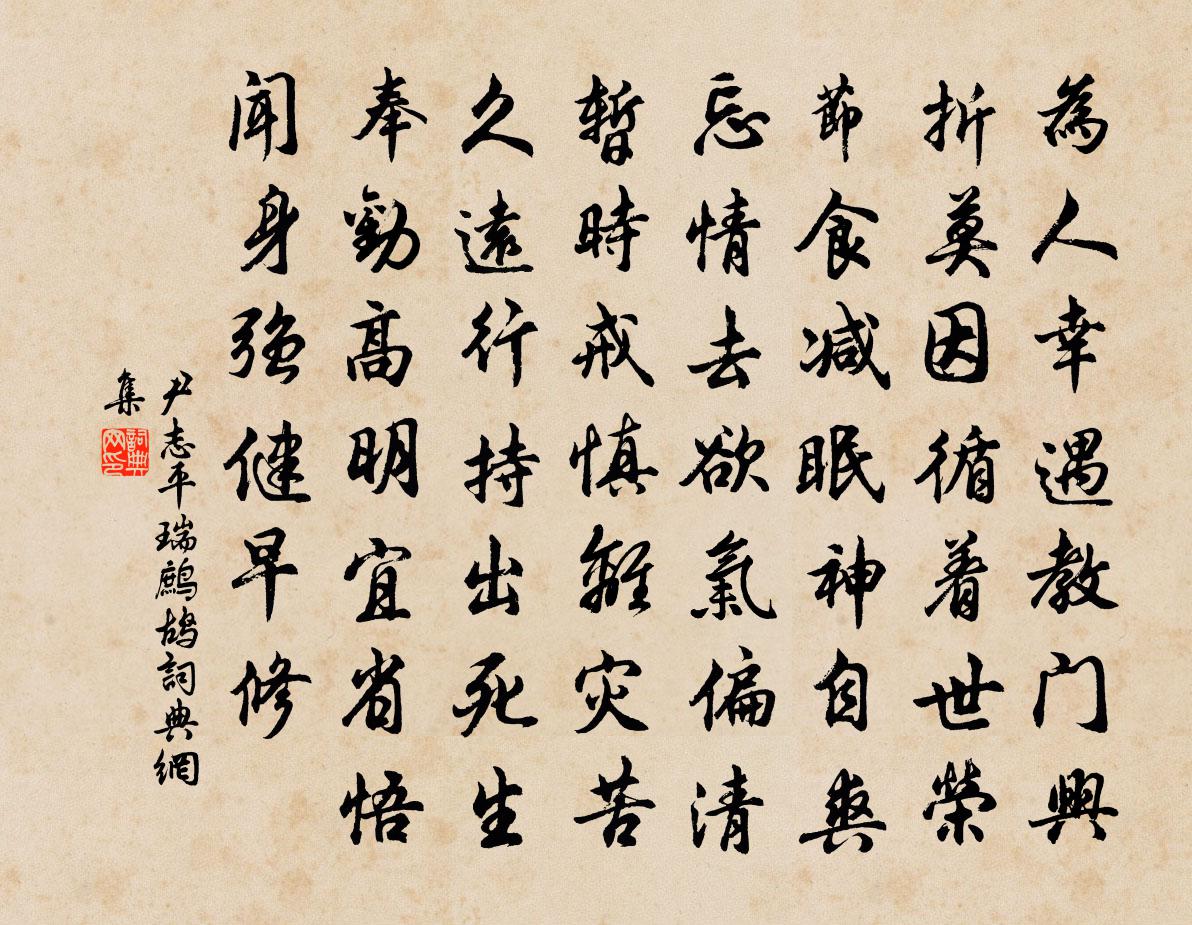 為人幸遇教门興
折莫因循着世榮
節食减眠神自爽
忘情去欲氣偏清
暫時戒慎離灾苦
久遠行持出死生
奉勸高明宜省悟
闻身强健早修
尹志平瑞鷓鴣詞典網
集
詞典网印